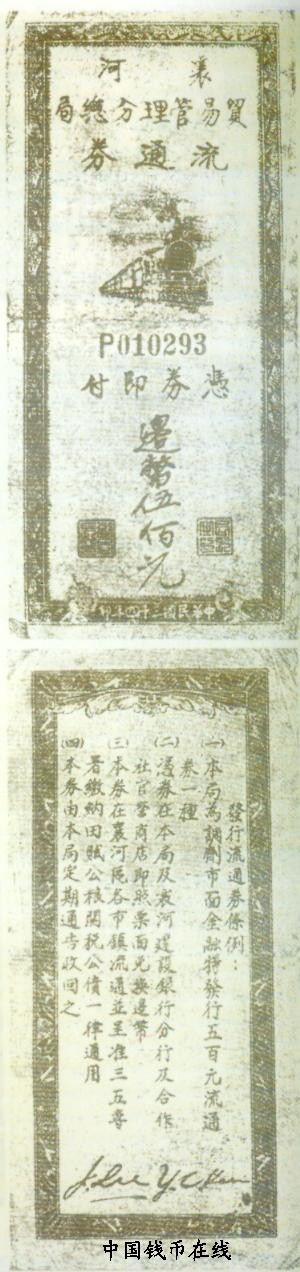 襄河
貿易管理分總局
流通券
P010293
憑券即付
邊幣伍佰元
中華民國三十四年印
發行流通券條例:
㈠本局為調劑市面金融特發行五百元流通
券一種
㈡憑券在本局及襄河建設銀行分行及合作
社官營商店即照票面兌換邊幣
㈢本券在襄河區各市鎮流通並呈准三五專
署繳納田賦公粮關稅公債一律通用
㈣本券由本局定期通告收回之
中国钱币在线